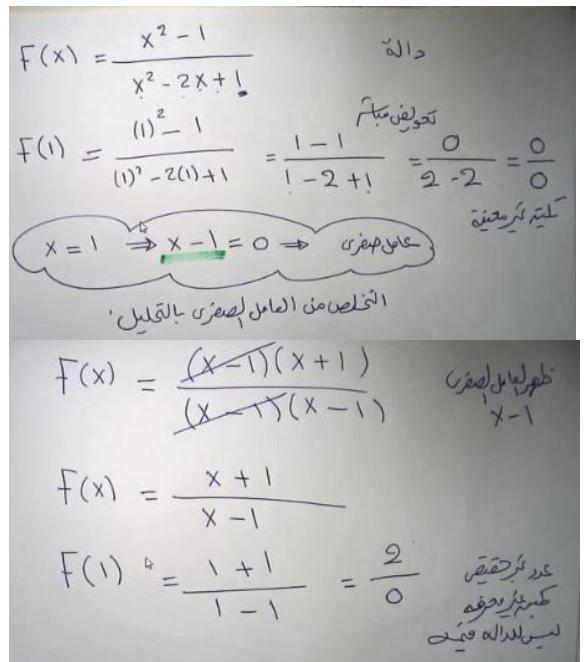 F(x) = (x² - 1) / (x² - 2x + 1) دالة
تعويض مباشر
F(1) = ((1)² - 1) / ((1)² - 2(1) + 1) = (1 - 1) / (1 - 2 + 1) = 0 / (2 - 2) = 0/0
كمية غير معينة
x = 1 ⇒ x - 1 = 0 ⇒ عامل صفرى
التخلص من العامل الصفرى بالتحليل.
F(x) = ((x - 1)(x + 1)) / ((x - 1)(x - 1)) ظهر العامل الصفرى
x - 1
F(x) = (x + 1) / (x - 1)
F(1) = (1 + 1) / (1 - 1) = 2/0 عدد غير حقيقى
كمية غير معرفه
ليس للداله قيمه